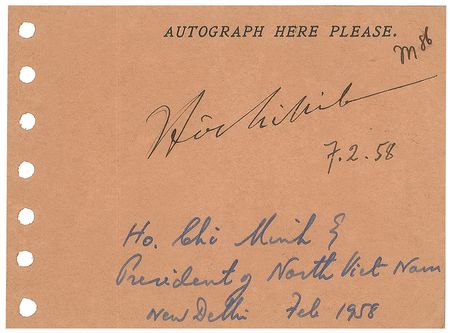 AUTOGRAPH HERE PLEASE.
M 86
Hồ Chí Minh
7.2.58
Ho. Chi Minh &
President of North Viet Nam
New Delhi Feb 1958